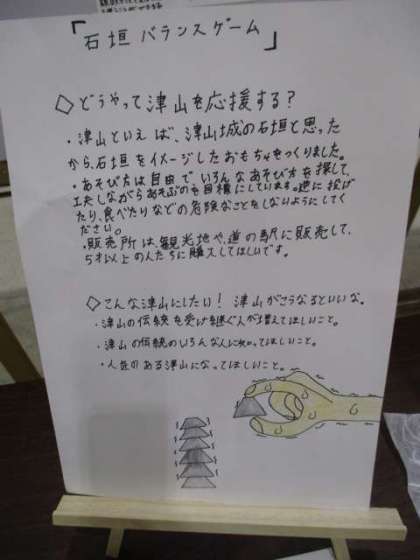 「石垣バランスゲーム」
◇どうやって津山を応援する？
・津山といえば、津山城の石垣と思った
から、石垣をイメージしたおもちゃをつくりました。
・あそび方は自由で いろんなあそび方を探して、
工夫しながらあそぶのを目標にしています。逆に投げ
たり、食べたりなどの危険なことをしないようにしてく
ださい。
・販売所は、観光地や、道の駅に販売して、
5才以上の人たちに購入してほしいです。
◇こんな津山にしたい！ 津山がこうなるといいな。
・津山の伝統を受け継ぐ人が増えてほしいこと。
・津山の伝統のいろんな人に知ってほしいこと。
・人気のある津山になってほしいこと。